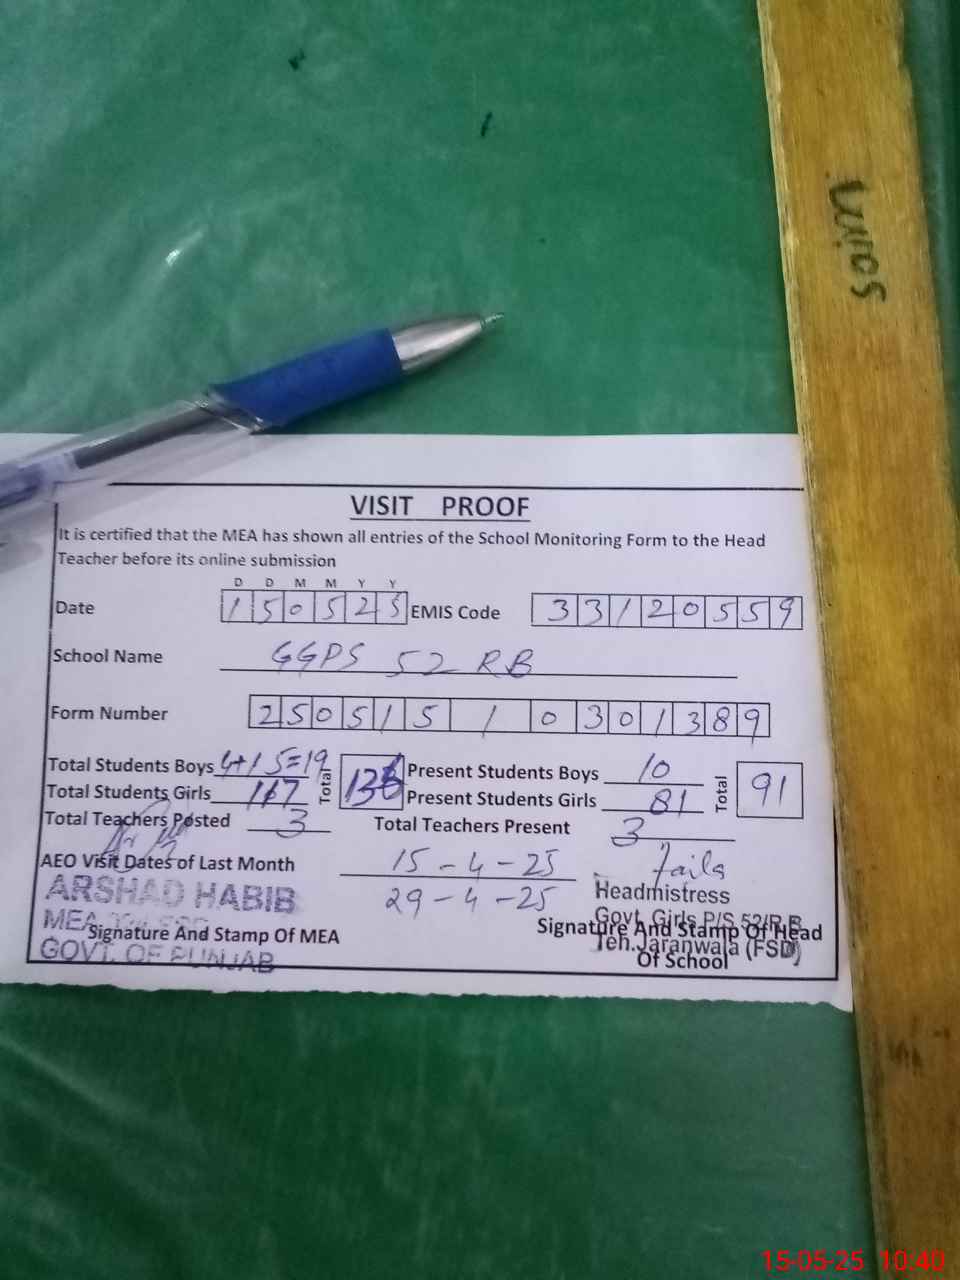 soim
VISIT PROOF
It is certified that the MEA has shown all entries of the School Monitoring Form to the Head
Teacher before its online submission
D D M M Y Y
Date 1 5 0 5 2 5 EMIS Code 3 3 1 2 0 5 5 9
School Name GGPS 52 RB
Form Number 2 5 0 5 1 5 1 0 3 0 1 3 8 9
Total Students Boys 4+15=19 Total 136 Present Students Boys 10 Total 91
Total Students Girls 117 Present Students Girls 81
Total Teachers Posted 3 Total Teachers Present 3
AEO Visit Dates of Last Month 15-4-25
29-4-25
ARSHAD HABIB
MEA
GOVT. OF PUNJAB
Signature And Stamp Of MEA
Headmistress
Govt. Girls P/S 52/R.B
Teh. Jaranwala (FSD)
Signature And Stamp Of Head
Of School
15-05-25 10:40